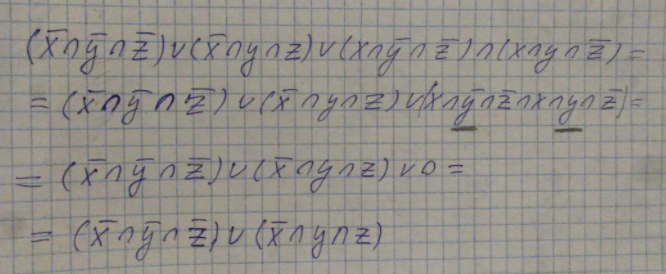 (x̄∩ȳ∩z̄)∪(x̄∩y∩z)∪(x∩ȳ∩z̄)∩(x∩y∩z̄)=
=(x̄∩ȳ∩z̄)∪(x̄∩y∩z)∪(x∩ȳ∩z̄∩x∩y∩z̄)=
=(x̄∩ȳ∩z̄)∪(x̄∩y∩z)∪0=
=(x̄∩ȳ∩z̄)∪(x̄∩y∩z)